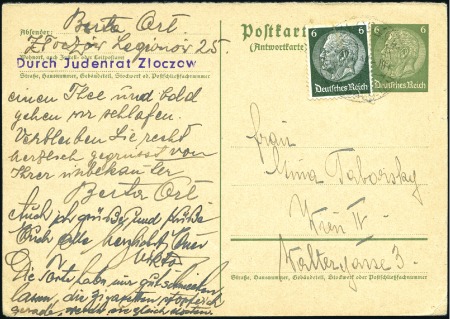 Absender:
Berta Ort.
Złoczów Legionów 25.
Wohnort, auch Zustell- oder Leitpostamt
Durch Judenrat Zloczow
Straße, Hausnummer, Gebäudeteil, Stockwerk od. Postschließfachnummer
einen Thee und bald
gehen wir schlafen.
Verbleiben Sie recht
herzlich gegrüsst von
Ihrer unbekannten
Berta Ort
Auch ich grüße und küße
Euch alle herzlichst Euer
Die Torte haben wir gut schmecken
lassen, die
gerade,
Postkarte
(Antwortkarte)
6 6
Deutsches Reich
6 6
Deutsches Reich
Frau
Mina Taborsky
Wien IV
3.
Straße, Hausnummer, Gebäudeteil, Stockwerk oder Postschließfachnummer